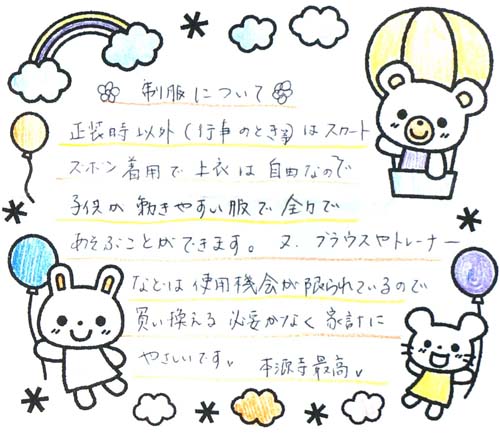 制服について
正装時以外(行事のとき等)はスカート
ズボン着用で上衣は自由なので
子供が動きやすい服で全力で
あそぶことができます。又、ブラウスやトレーナー
などは使用機会が限られているので
買い換える必要がなく家計に
やさしいです。本源寺最高。